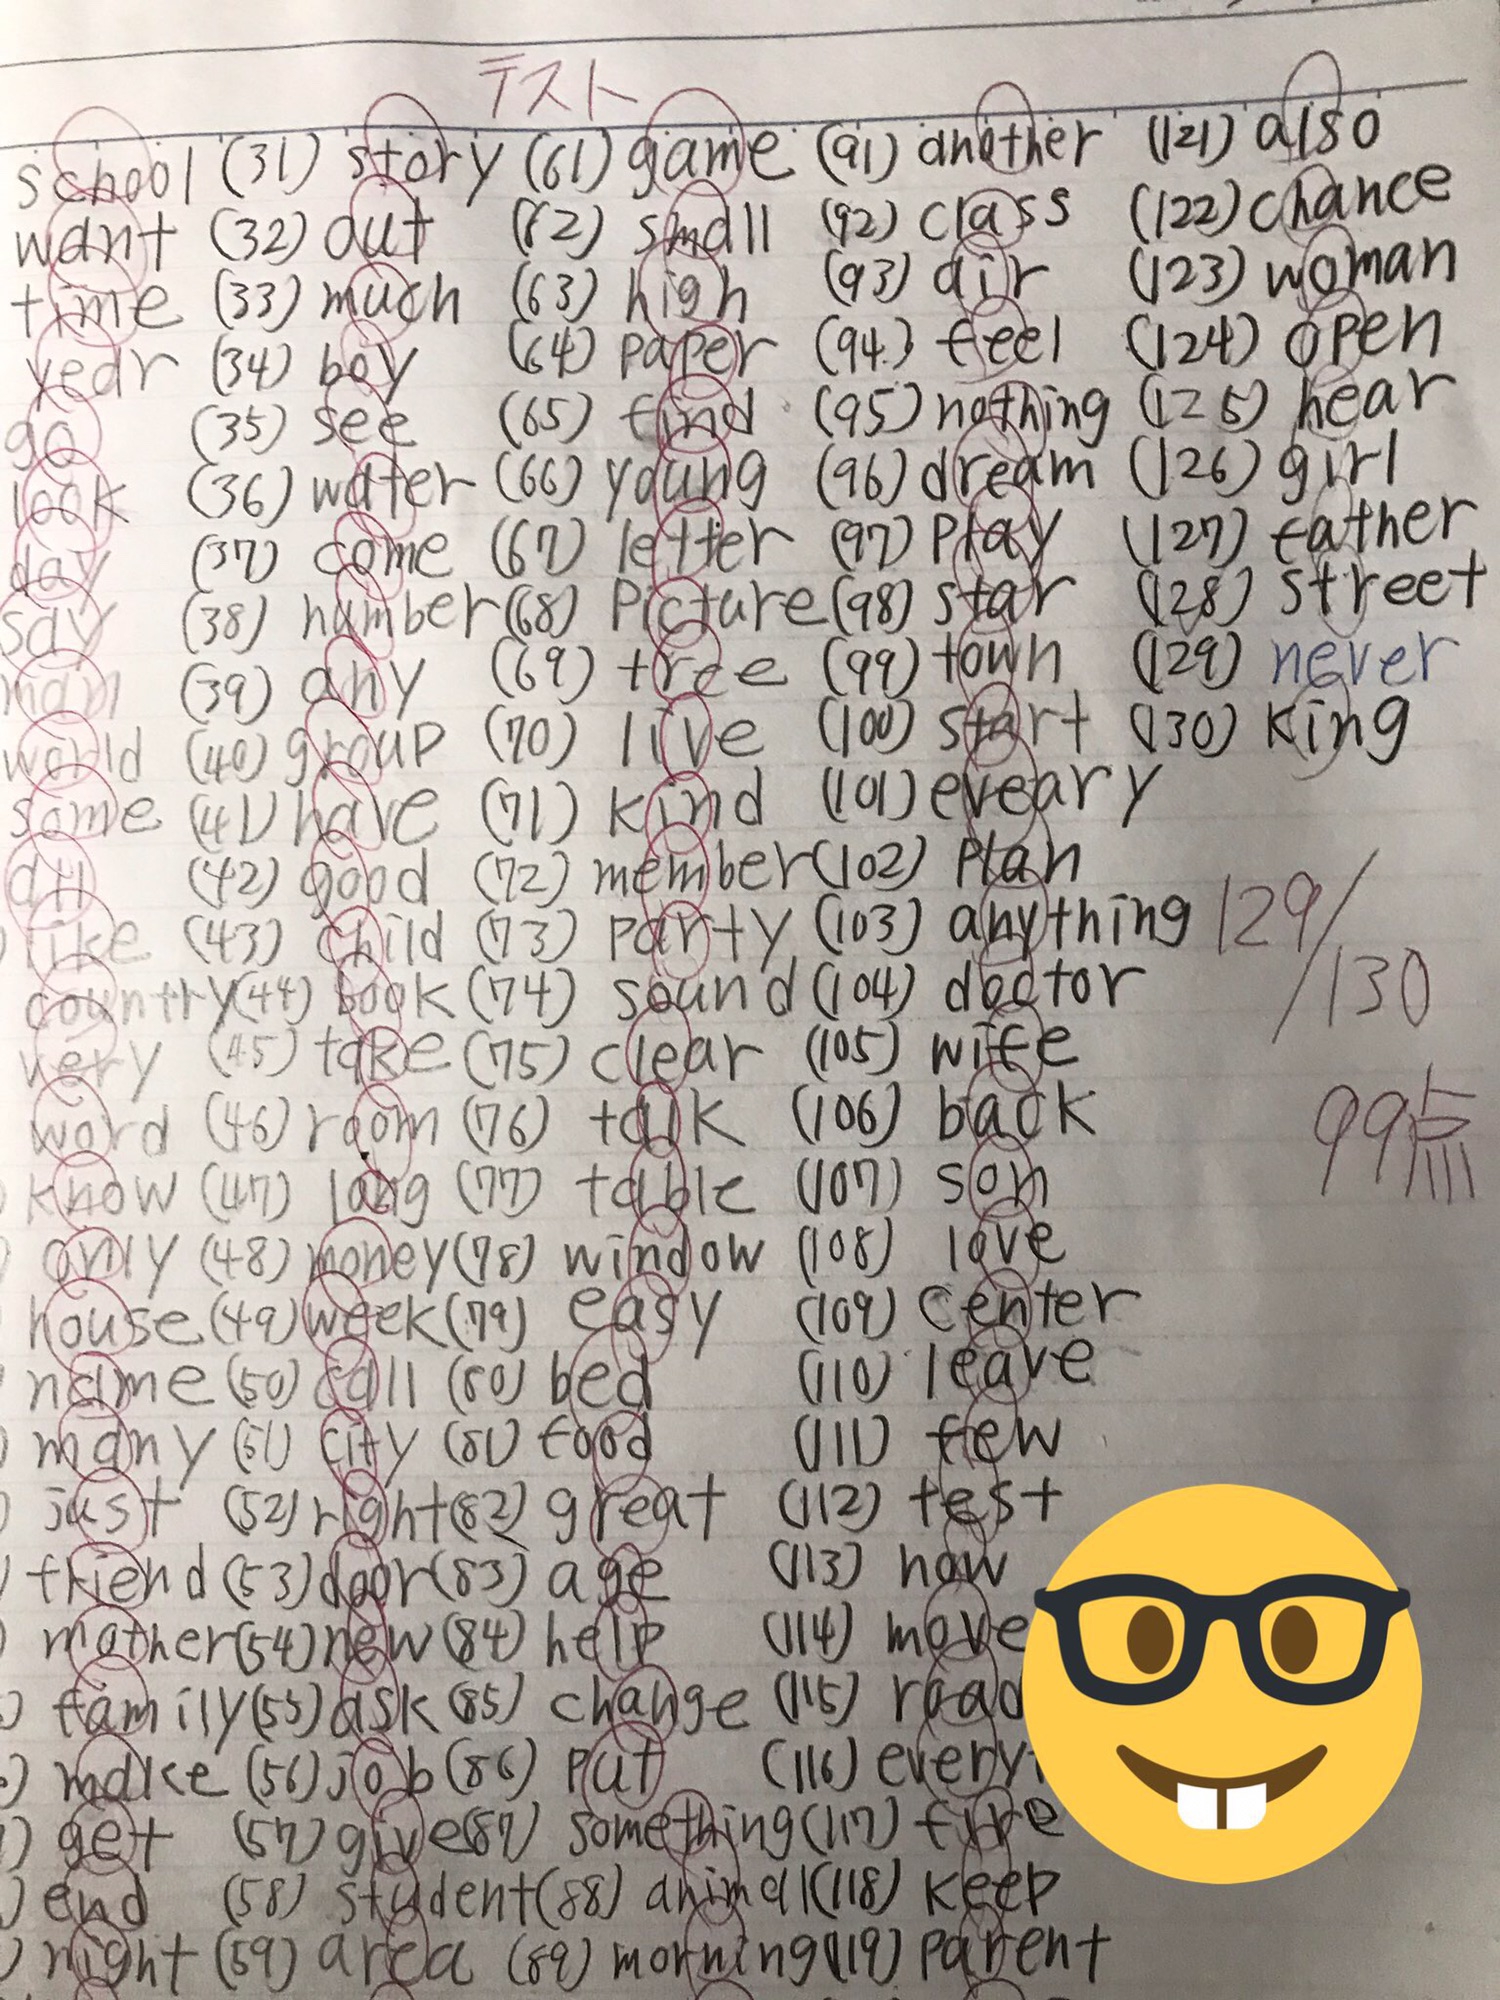 テスト
school (31) story (61) game (91) another (121) also
want (32) out (62) small (92) class (122) chance
time (33) much (63) high (93) air (123) woman
year (34) boy (64) paper (94) feel (124) open
go (35) see (65) find (95) nothing (125) hear
look (36) water (66) young (96) dream (126) girl
day (37) come (67) letter (97) play (127) father
say (38) number (68) picture (98) star (128) street
man (39) any (69) tree (99) town (129) never
world (40) group (70) live (100) start (130) king
some (41) have (71) kind (101) eveary
all (42) good (72) member (102) plan
like (43) child (73) party (103) anything
country (44) book (74) sound (104) doctor
very (45) take (75) clear (105) wife
word (46) room (76) talk (106) back
know (47) long (77) table (107) son
only (48) money (78) window (108) love
house (49) week (79) easy (109) center
name (50) call (80) bed (110) leave
many (51) city (81) food (111) few
just (52) right (82) great (112) test
friend (53) door (83) age (113) how
mother (54) new (84) help (114) move
family (55) ask (85) change (115) road
make (56) job (86) put (116)
get (57) give (87) something (117) fire
end (58) student (88) animal (118) keep
night (59) area (89) morning (119) parent
129/130
99点